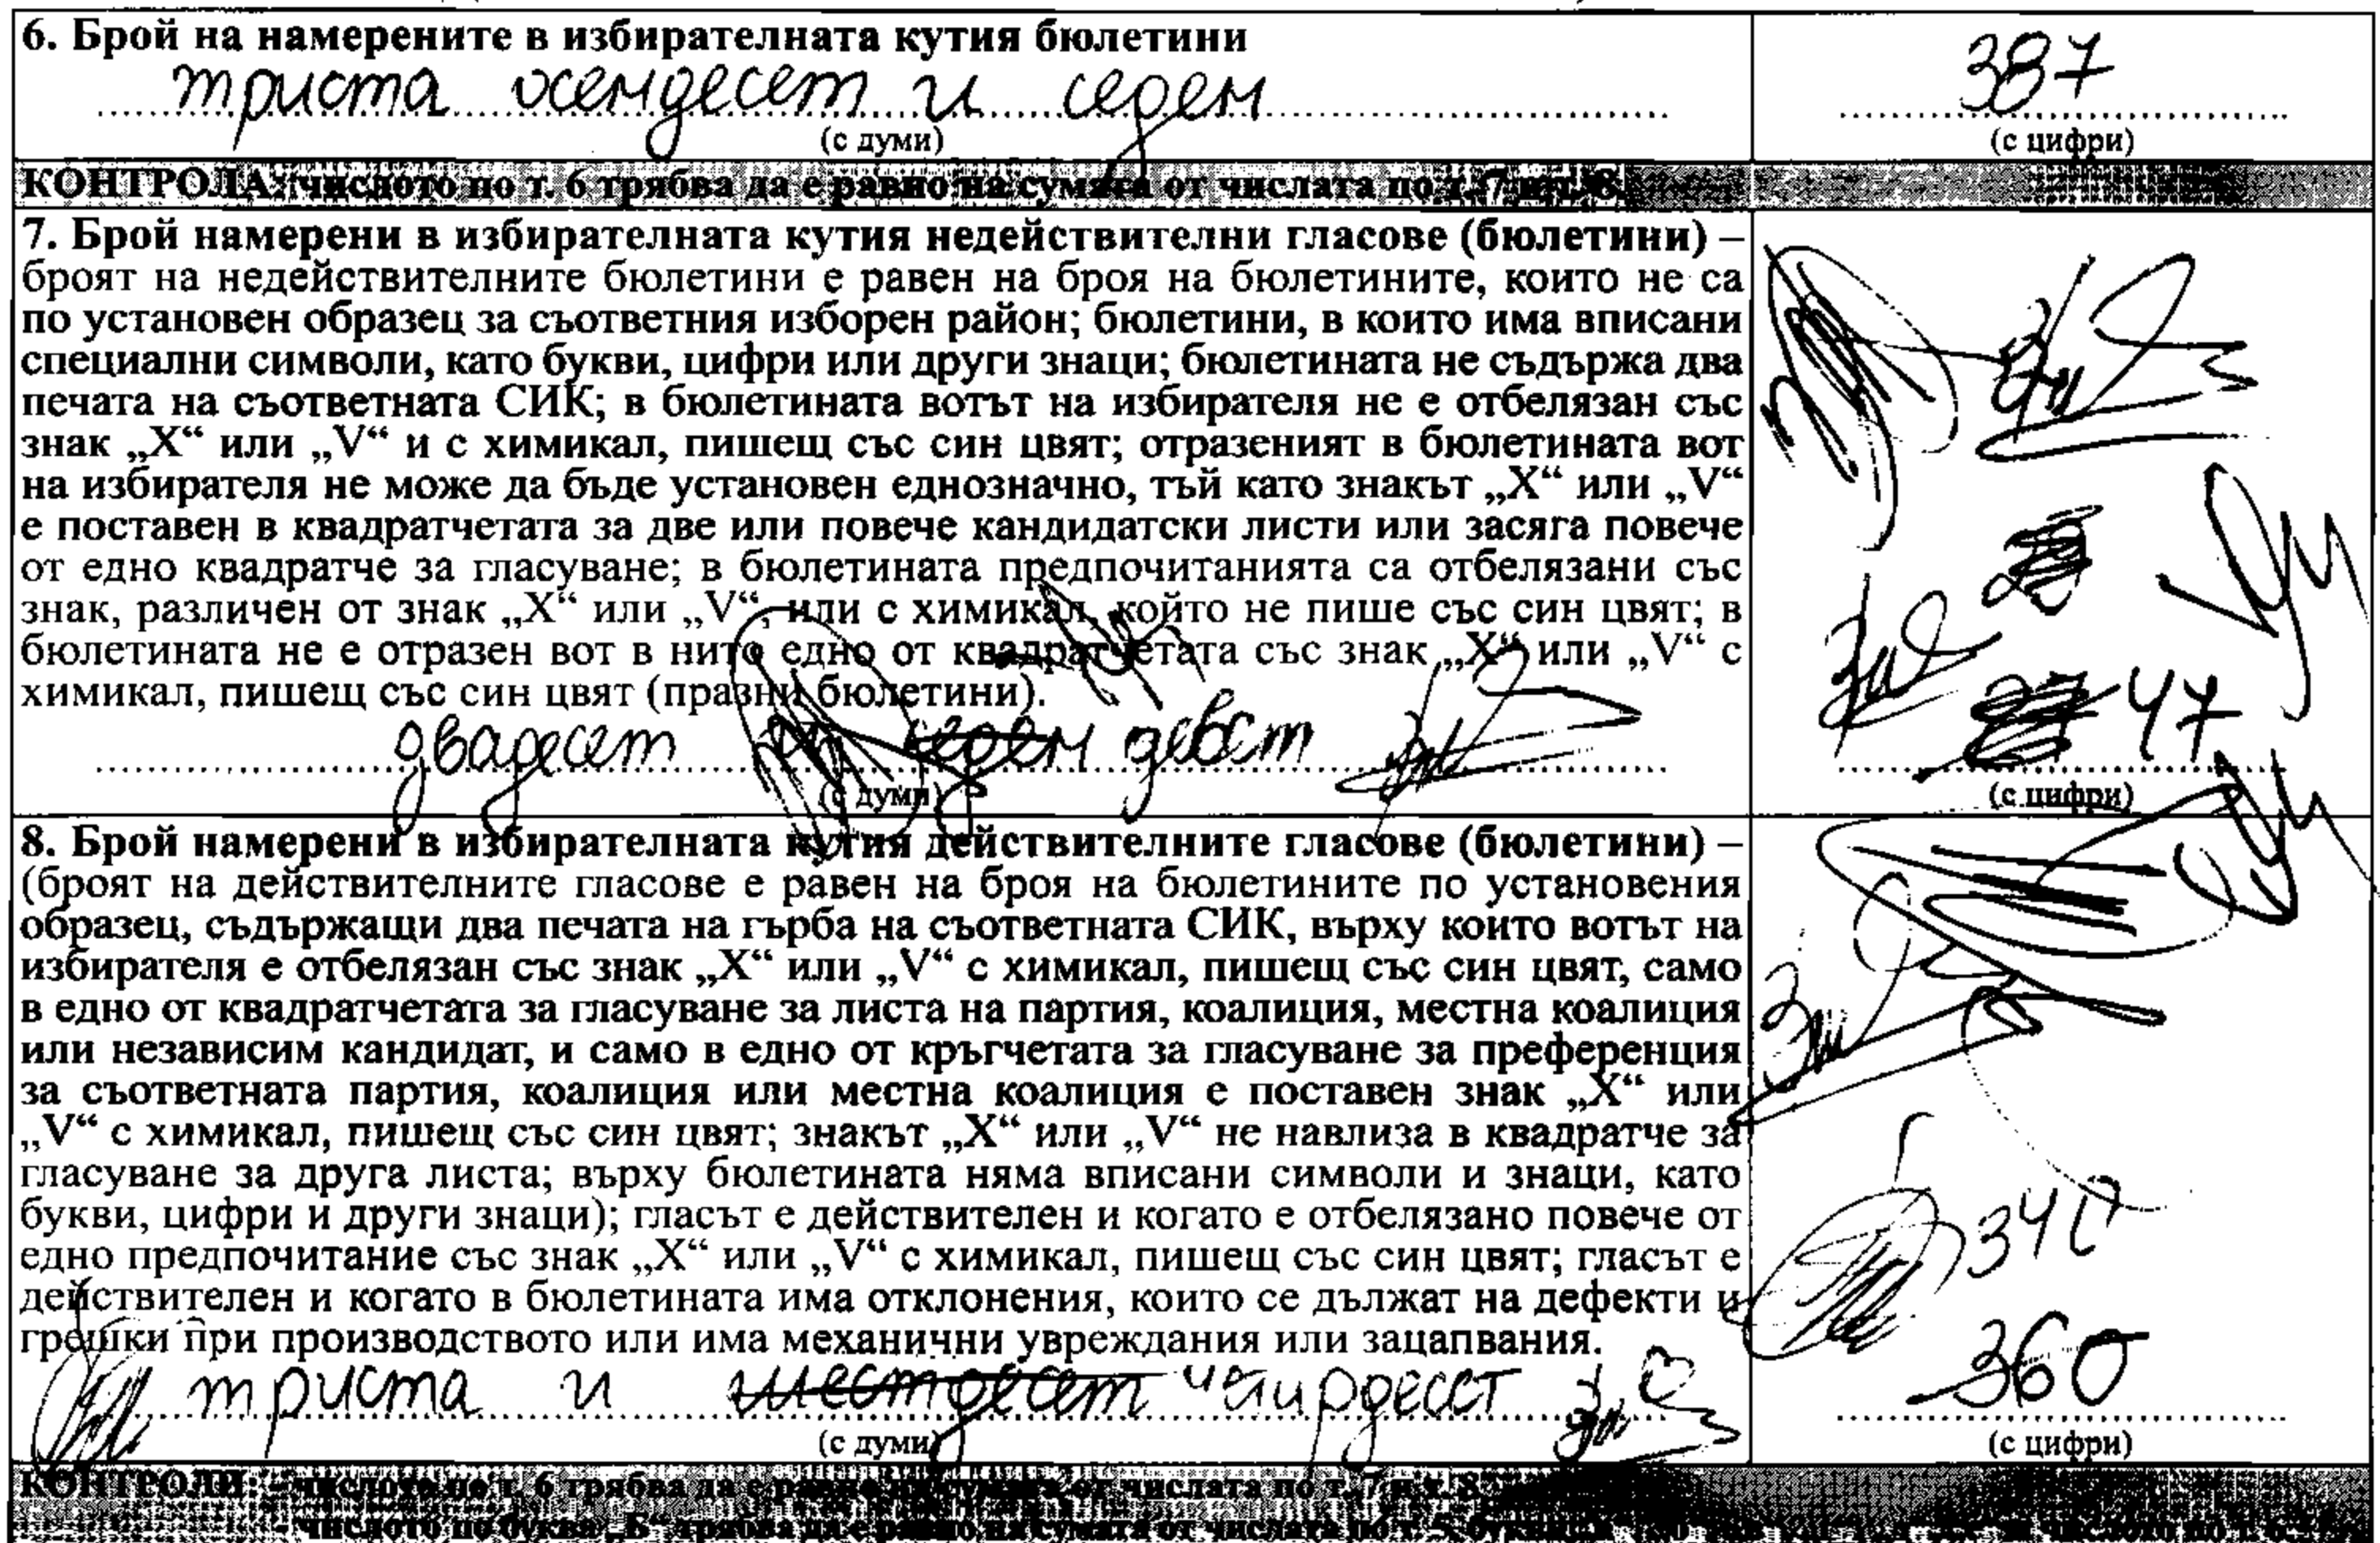 6. Брой на намерените в избирателната кутия бюлетини
триста осемдесет и седем
387
(с думи)
(с цифри)
КОНТРОЛА: числото по т. 6 трябва да е равно на сумата от числата по т. 7 и т. 8.
7. Брой намерени в избирателната кутия недействителни гласове (бюлетини) –
броят на недействителните бюлетини е равен на броя на бюлетините, които не са
по установен образец за съответния изборен район; бюлетини, в които има вписани
специални символи, като букви, цифри или други знаци; бюлетината не съдържа два
печата на съответната СИК; в бюлетината вотът на избирателя не е отбелязан със
знак „X“ или „V“ и с химикал, пишещ със син цвят; отразеният в бюлетината вот
на избирателя не може да бъде установен еднозначно, тъй като знакът „X“ или „V“
е поставен в квадратчетата за две или повече кандидатски листи или засяга повече
от едно квадратче за гласуване; в бюлетината предпочитанията са отбелязани със
знак, различен от знак „X“ или „V“, или с химикал, който не пише със син цвят; в
бюлетината не е отразен вот в нито едно от квадратчетата със знак „X“ или „V“ с
химикал, пишещ със син цвят (празни бюлетини).
двадесет седем
47
(с думи)
(с цифри)
8. Брой намерени в избирателната кутия действителните гласове (бюлетини) –
(броят на действителните гласове е равен на броя на бюлетините по установения
образец, съдържащи два печата на гърба на съответната СИК, върху които вотът на
избирателя е отбелязан със знак „X“ или „V“ с химикал, пишещ със син цвят, само
в едно от квадратчетата за гласуване за листа на партия, коалиция, местна коалиция
или независим кандидат, и само в едно от кръгчетата за гласуване за преференция
за съответната партия, коалиция или местна коалиция е поставен знак „X“ или
„V“ с химикал, пишещ със син цвят; знакът „X“ или „V“ не навлиза в квадратче за
гласуване за друга листа; върху бюлетината няма вписани символи и знаци, като
букви, цифри и други знаци); гласът е действителен и когато е отбелязано повече от
едно предпочитание със знак „X“ или „V“ с химикал, пишещ със син цвят; гласът е
действителен и когато в бюлетината има отклонения, които се дължат на дефекти и
грешки при производството или има механични увреждания или зацапвания.
340
триста и шестдесет
360
(с думи)
(с цифри)
КОНТРОЛИ: - числото по т. 6 трябва да е равно на сумата от числата по т. 7 и т. 8
- числото по буква „Б“ трябва да е равно на сумата от числата по т. 5, буква